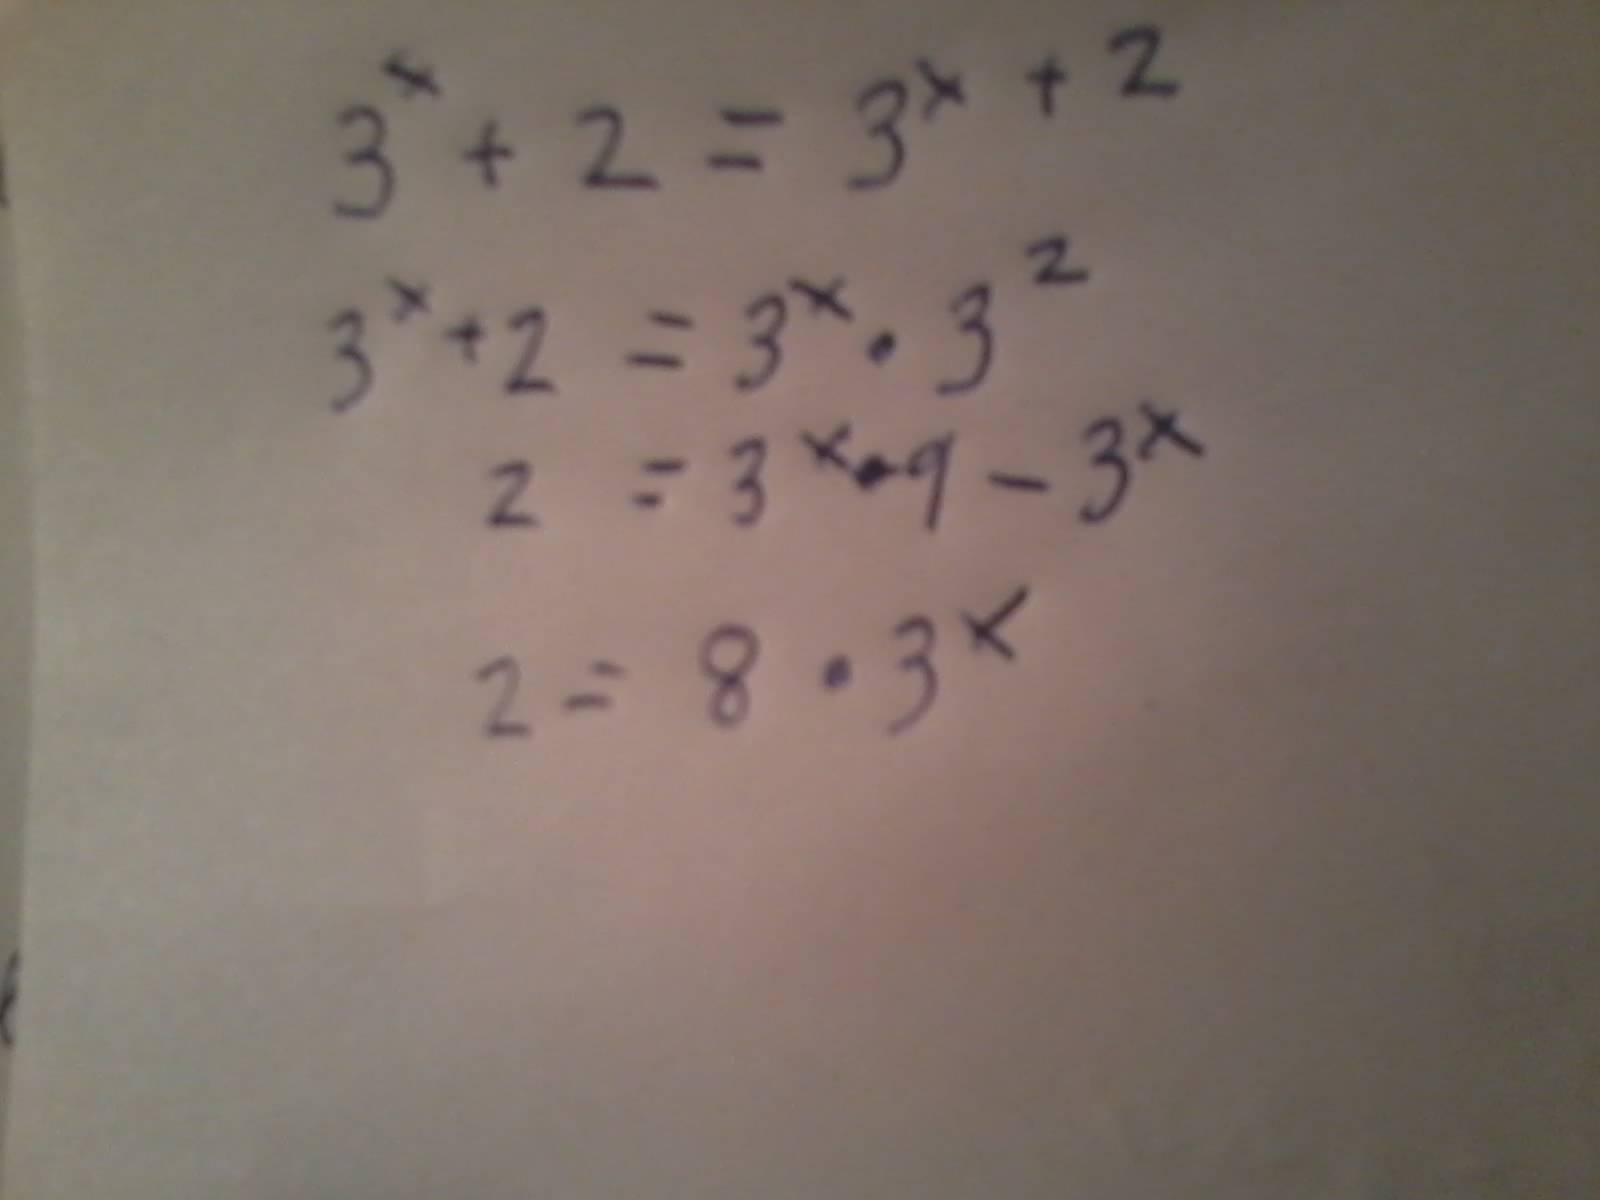 3^x + 2 = 3^(x + 2)
3^x + 2 = 3^x · 3^2
2 = 3^x · 9 - 3^x
2 = 8 · 3^x